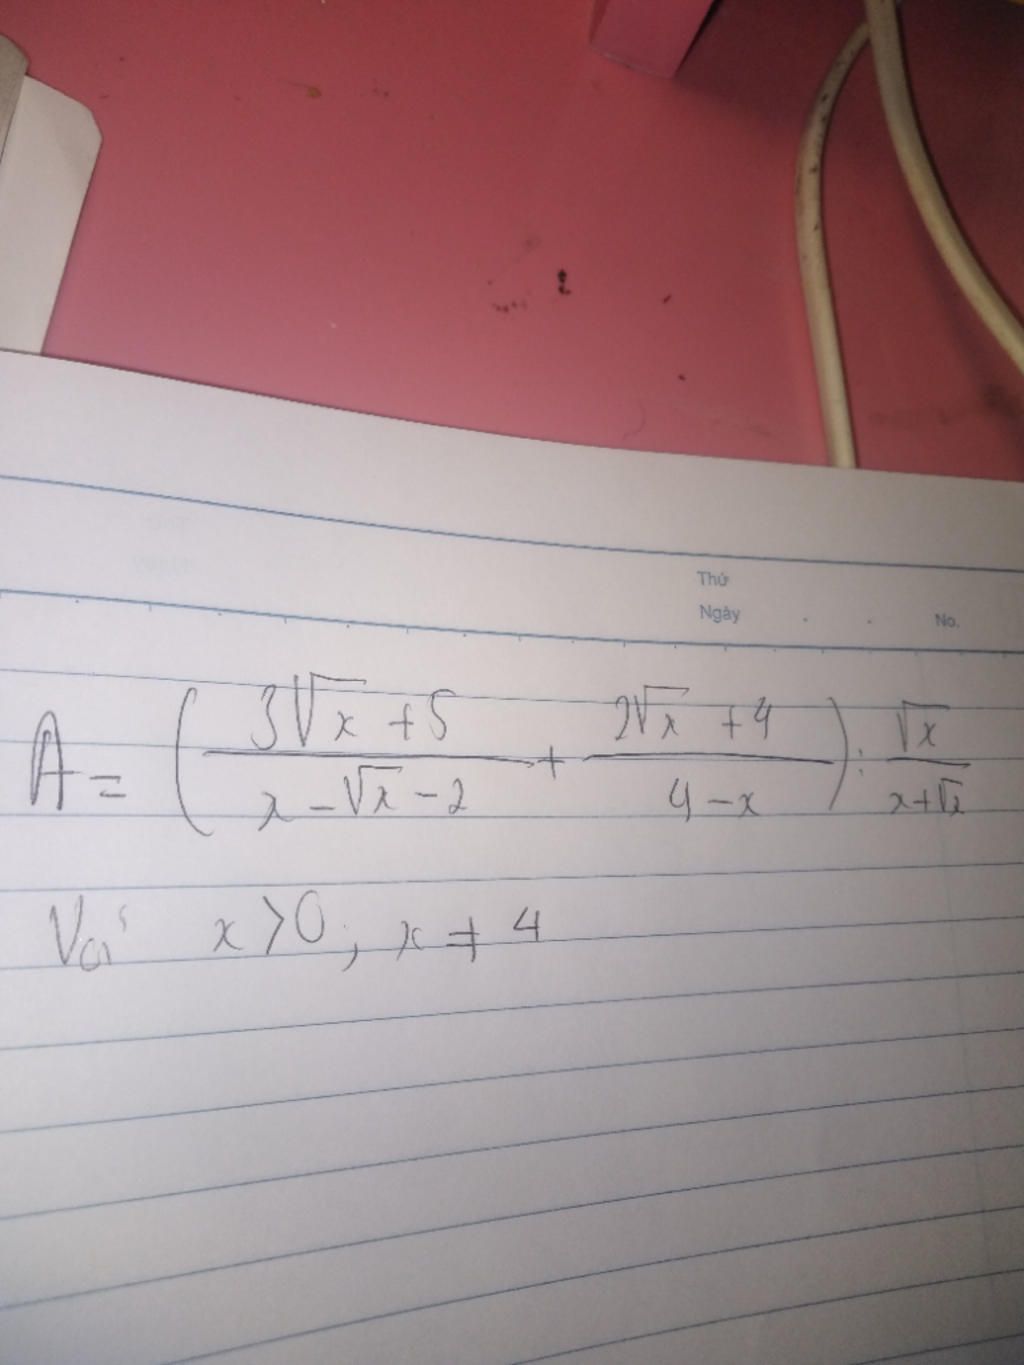 Thứ
Ngày . . No.
A = ( (3√x + 5)/(x - √x - 2) + (2√x + 4)/(4 - x) ) : √x/(x + √x)
Với x > 0 ; x ≠ 4